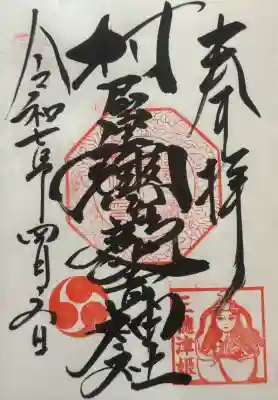 奉拝
村屋坐彌冨都比賣神社
令和七年四月五日
三穂津姫